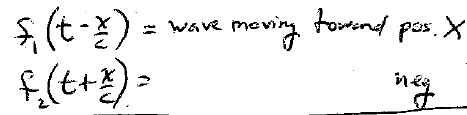 f₁(t-x/c) = wave moving toward pos. X
f₂(t+x/c) = neg